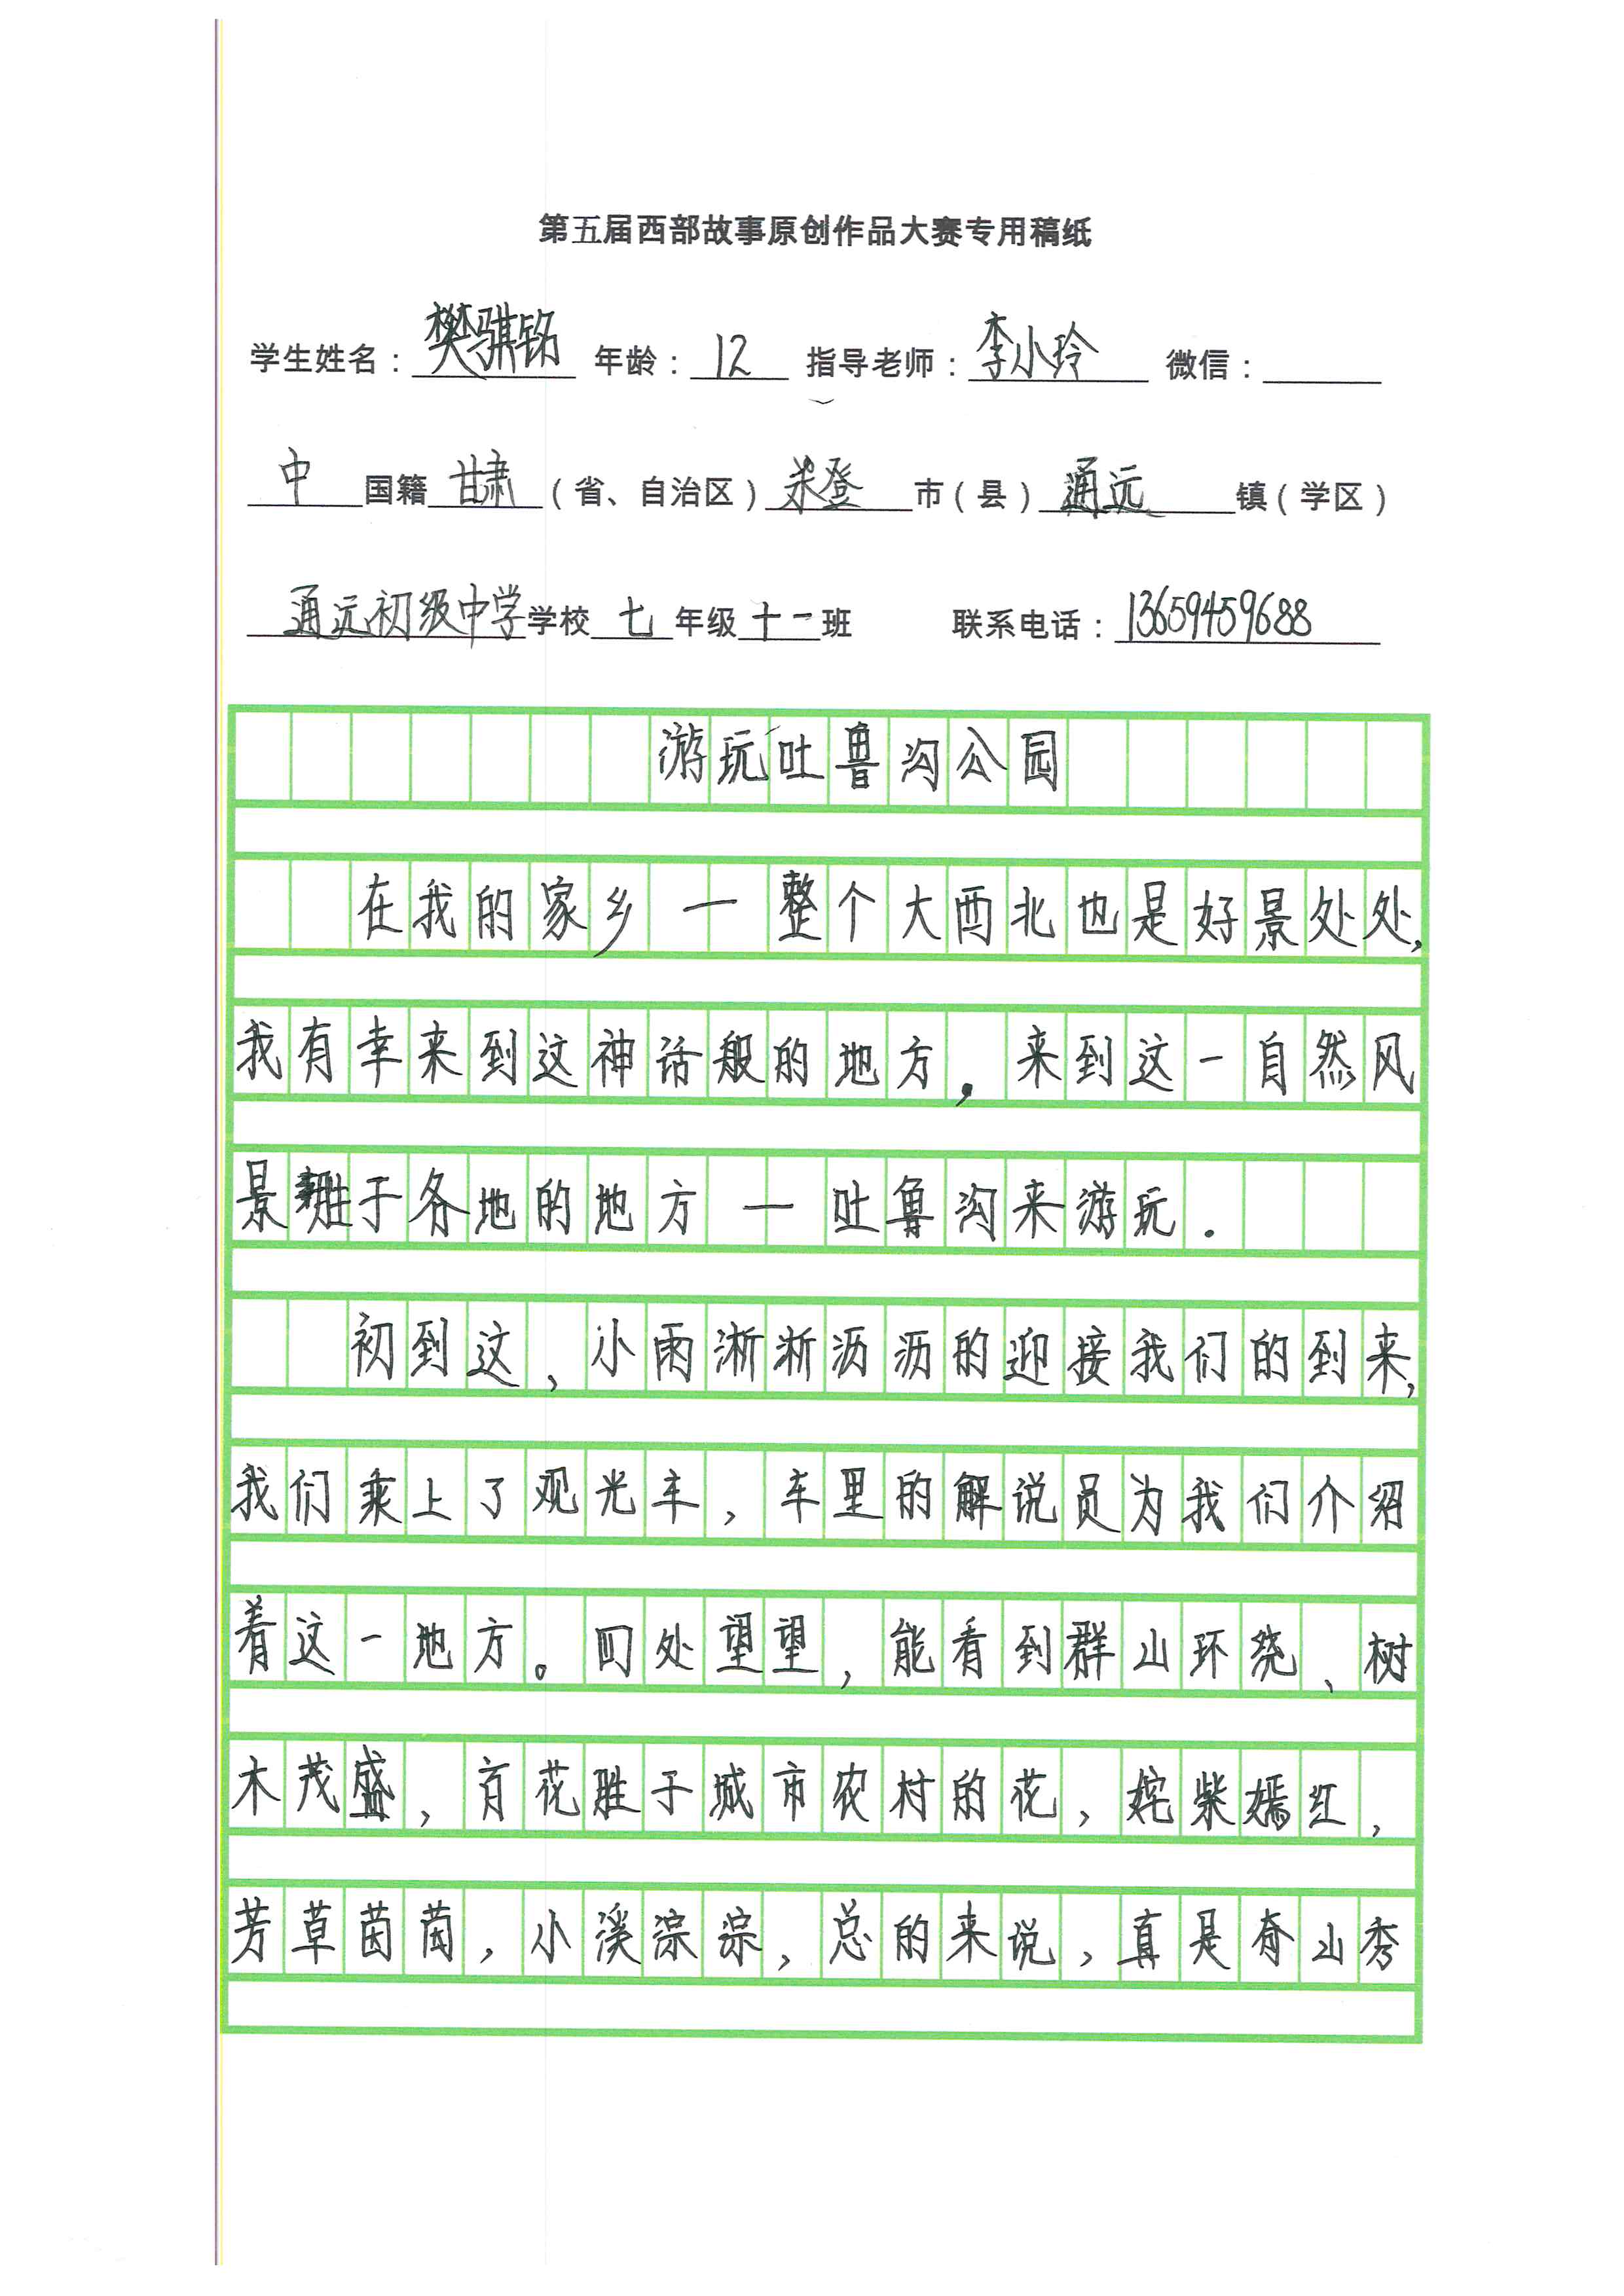 第五届西部故事原创作品大赛专用稿纸
学生姓名：樊骐铭 年龄：12 指导老师：李小玲 微信：
中国籍甘肃（省、自治区）永登市（县）通远镇（学区）
通远初级中学学校七年级十一班 联系电话：13659459688
游玩吐鲁沟公园
在我的家乡一整个大西北也是好景处处，
我有幸来到这神话般的地方，来到这一自然风
景胜于各地的地方一吐鲁沟来游玩．
初到这，小雨淅淅沥沥的迎接我们的到来，
我们乘上了观光车，车里的解说员为我们介绍
着这一地方。四处望望，能看到群山环绕、树
木茂盛，百花胜于城市农村的花，姹柴嫣红，
芳草茵茵，小溪淙淙，总的来说，真是奇山秀